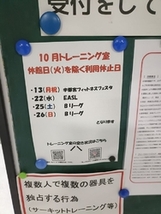 受付をして
10月トレーニング室
休館日(火)を除く利用休止日
・13(月祝) 中原区フィットネスフェスタ
・22(水) EASL
・25(土) Bリーグ
・26(日) Bリーグ
となります
複数人で複数の器具を
独占する行為
(サーキットトレーニング等)